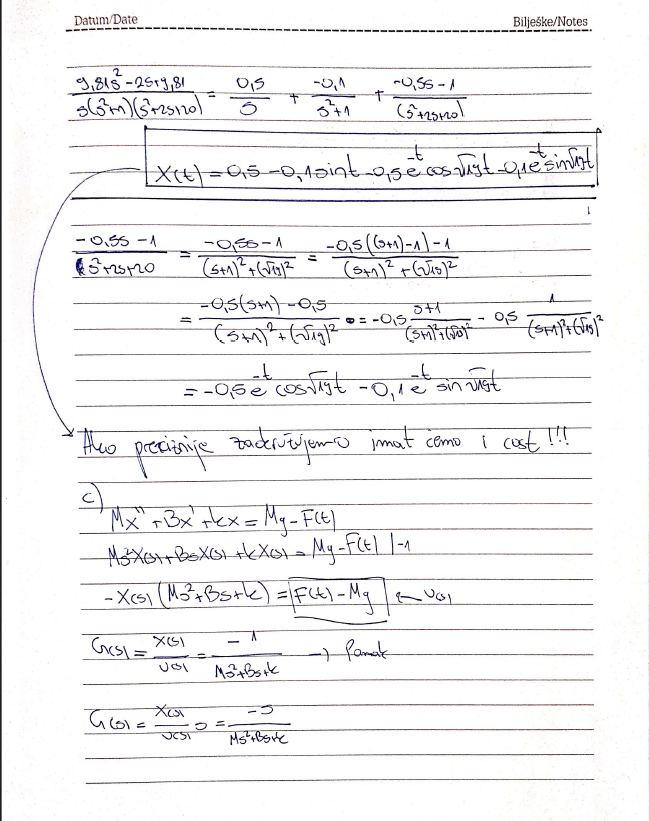 Datum/Date Bilješke/Notes
(9,81s²-2s+9,81)/(s(s²+1)(s²+2s+20)) = 0,5/s + -0,1/(s²+1) + (-0,5s-1)/(s²+2s+20)
X(t) = 0,5 - 0,1 sint - 0,5e^-t cos√19t - 0,1e^-t sin√19t
(-0,5s-1)/(s²+2s+20) = (-0,5s-1)/((s+1)²+(√19)²) = (-0,5((s+1)-1)-1)/((s+1)²+(√19)²)
= (-0,5(s+1)-0,5)/((s+1)²+(√19)²) = -0,5 (s+1)/((s+1)²+(√19)²) - 0,5 1/((s+1)²+(√19)²)
= -0,5e^-t cos√19t - 0,1e^-t sin√19t
Ako preciznije zaokružujemo imat ćemo i cost !!!
c)
Mx'' + Bx' + kx = Mg - F(t)
Ms²X(s) + BsX(s) + kX(s) = Mg - F(t) |-1
-X(s) (Ms²+Bs+k) = F(t) - Mg ← U(s)
G(s) = X(s)/U(s) = -1/(Ms²+Bs+k) → Pomak
G(s) = X(s)/U(s) s = -s/(Ms²+Bs+k)